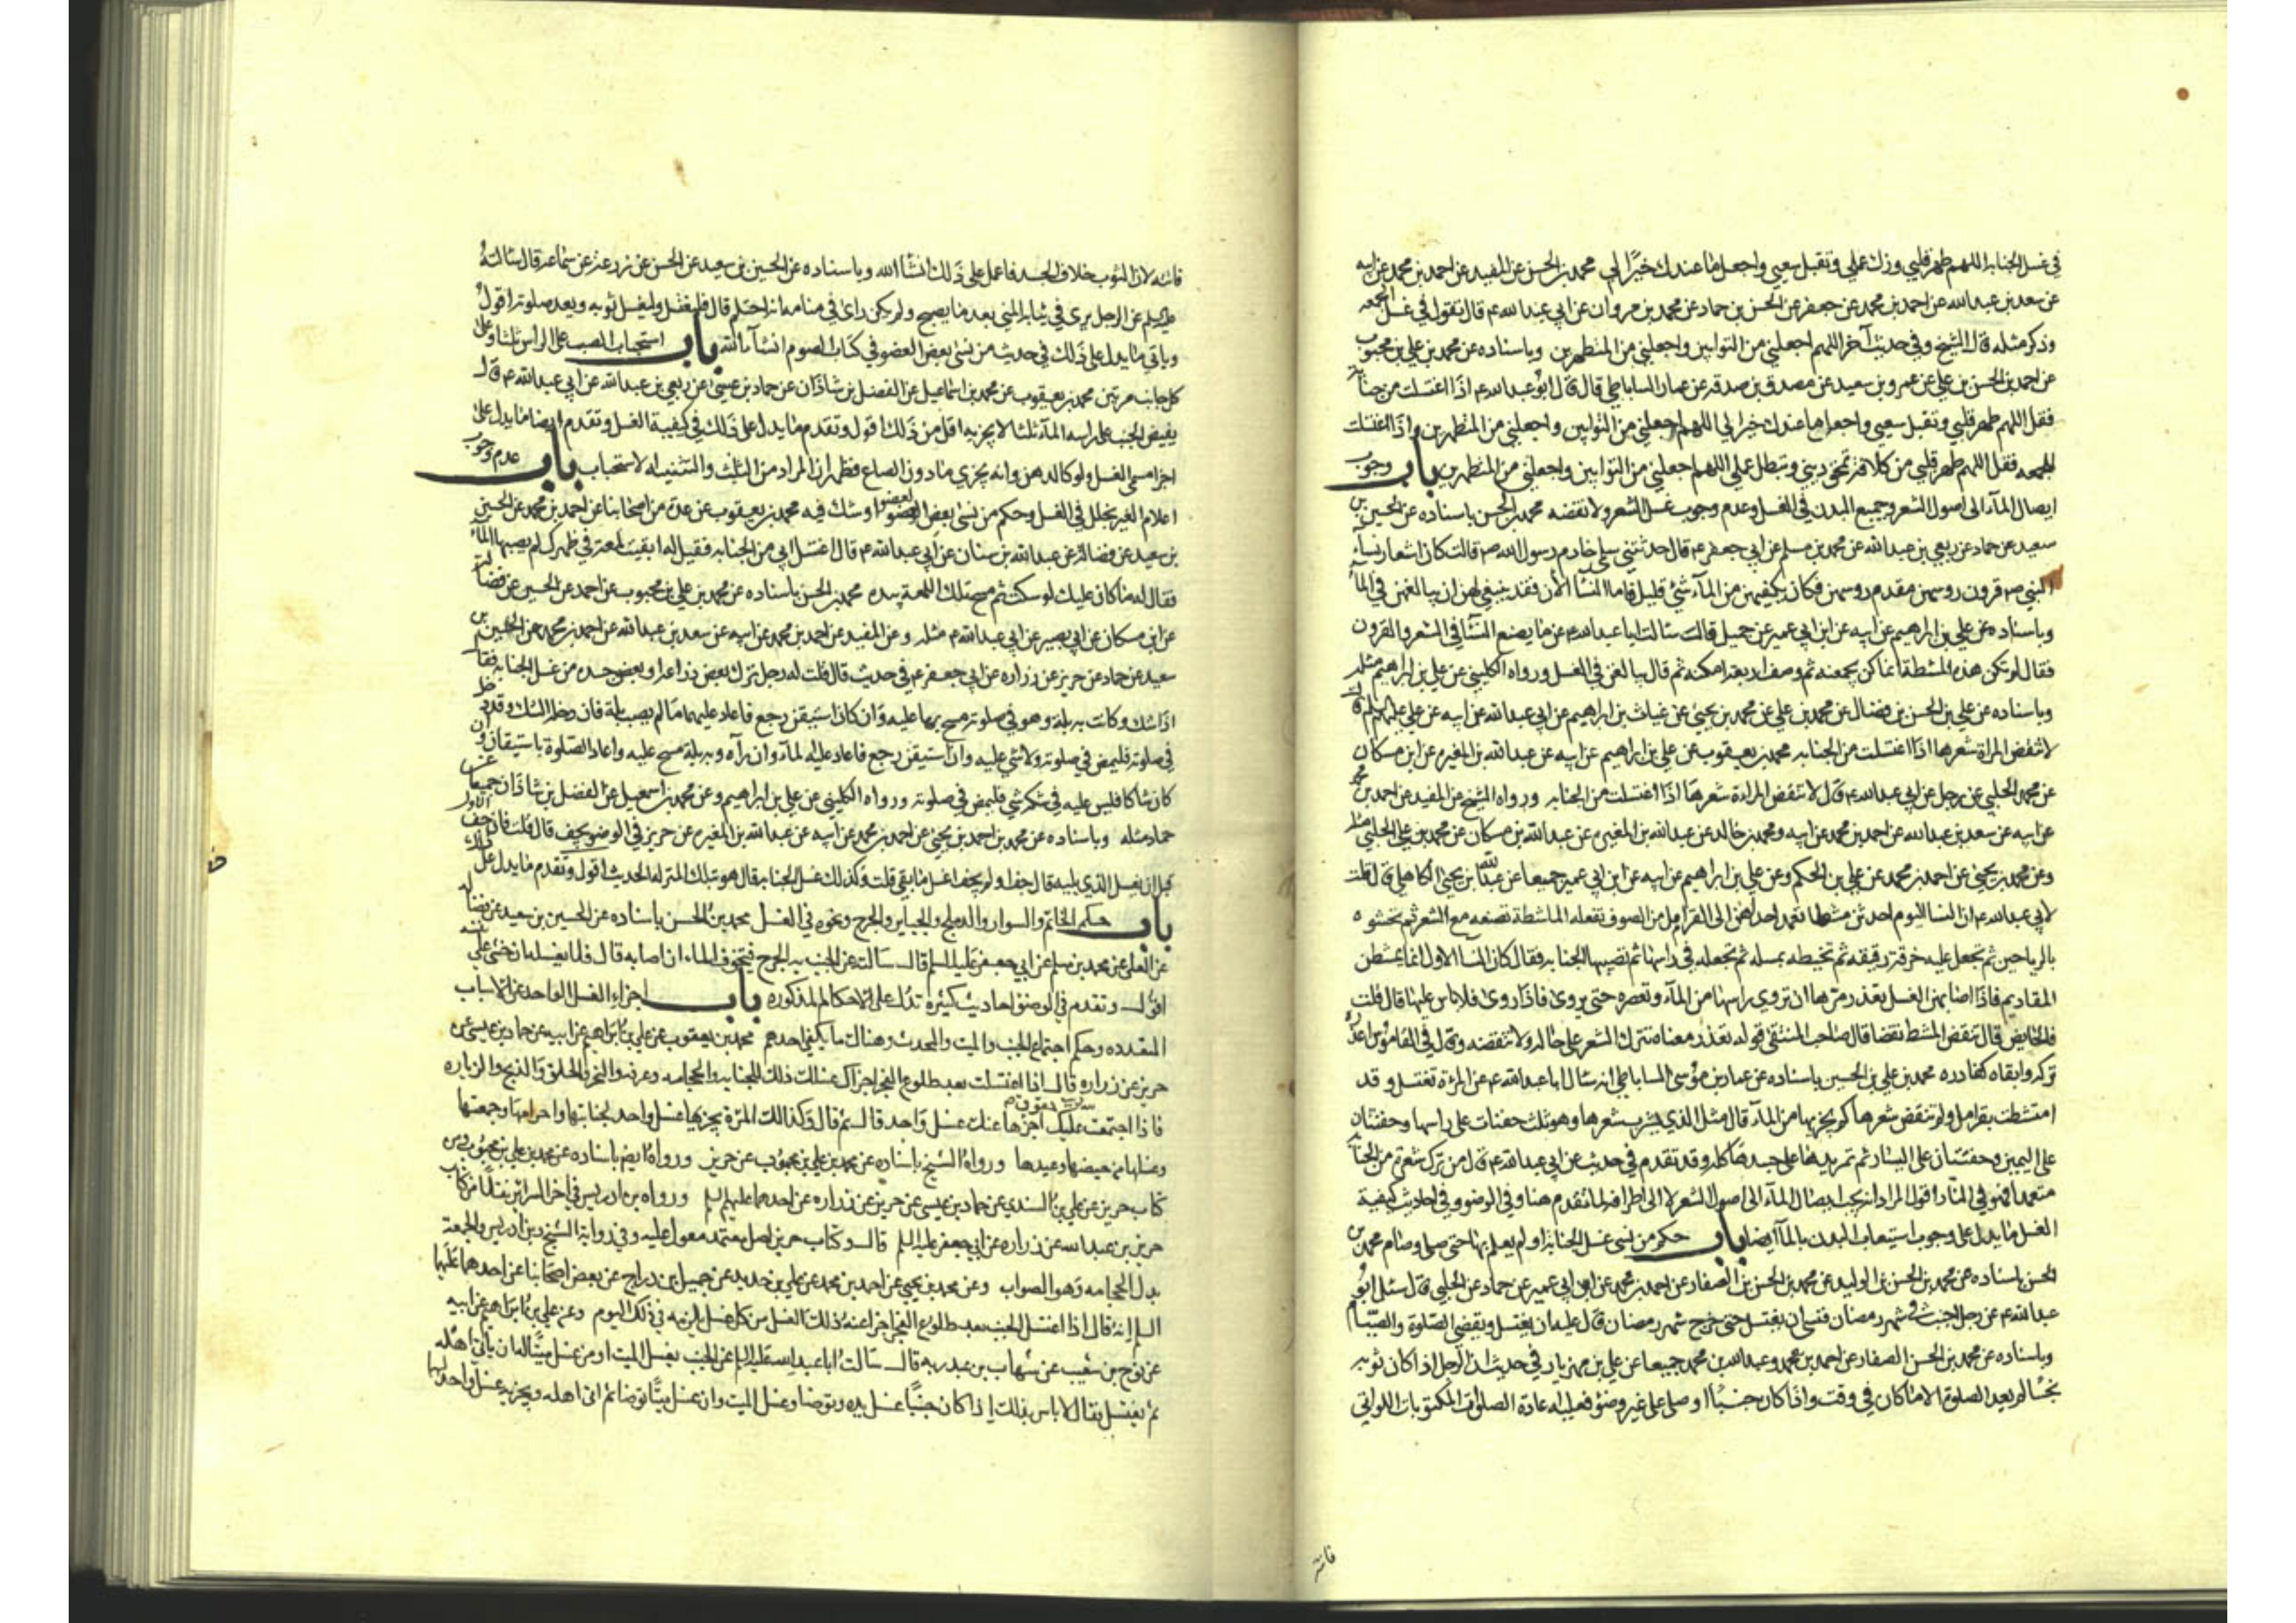 في غسل الجنابة اللهم طهر قلبي وزك عملي وتقبل سعيي واجعل ما عندك خيرًا لي محمد بن الحسن عن المفيد عن احمد بن محمد عن ابيه
عن سعد بن عبد الله عن احمد بن محمد عن جعفر عن الحسن بن حماد عن محمد بن مروان عن ابي عبد الله ع قال تقول في غسل الجمعه
وذكر مثله قال الشيخ وفي حديث آخر اللهم اجعلني من التوابين واجعلني من المتطهرين وباسناده عن محمد بن علي بن محبوب
عن احمد بن الحسن بن علي عن عمرو بن سعيد عن مصدق بن صدقه عن عمار الساباطي قال قال ابو عبد الله ع اذا اغتسلت من جنابة
فقل اللهم طهر قلبي وتقبل سعيي واجعل ما عندك خيرا لي اللهم اجعلني من التوابين واجعلني من المتطهرين واذا اغتسلت
للجمعه فقل اللهم طهر قلبي من كل افة تمحق ديني وتبطل عملي اللهم اجعلني من التوابين واجعلني من المتطهرين باب وجوب
ايصال المآء الى اصول الشعر وجميع البدن في الغسل وعدم وجوب غسل الشعر ولا نقضه محمد بن الحسن باسناده عن الحسين بن
سعيد عن حماد عن ربعي بن عبد الله عن محمد بن مسلم عن ابي جعفر ع قال حدثتني سلمى خادم رسول الله ص قالت كان اشعار نساء
النبي ص قرون روسهن مقدم روسهن فكان يكفيهن من المآء شئ قليل فاما النسا الآن فقد ينبغي لهن ان يبالغن في المآء
وباسناده عن علي بن ابراهيم عن ابيه عن ابن ابي عمير عن جميل قال سالت ابا عبد الله ع عما يصنع النسآ في الشعر والقرون
فقال لم تكن هذه المشطة انما كن يجمعنه ثم وصف اربعة امكنه ثم قال يبالغن في الغسل ورواه الكليني عن علي بن ابراهيم مثله
وباسناده عن علي بن الحسن بن فضال عن محمد بن علي عن محمد بن يحيى عن غياث بن ابراهيم عن ابي عبد الله عن ابيه عن علي عليهم السلم قال
لا تنقض المراة شعرها اذا اغتسلت من الجنابه محمد بن يعقوب عن علي بن ابراهيم عن ابيه عن عبد الله بن المغيره عن ابن مسكان
عن محمد الحلبي عن رجل عن ابي عبد الله ع قال لا تنقض المراة شعرها اذا اغتسلت من الجنابه ورواه الشيخ عن المفيد عن احمد بن محمد
عن ابيه عن سعد بن عبد الله عن احمد بن محمد عن ابيه ومحمد بن خالد عن عبد الله بن المغيره عن عبد الله بن مسكان عن محمد بن علي الحلبي مثله
وعن محمد بن يحيى عن احمد بن محمد عن علي بن الحكم وعن علي بن ابراهيم عن ابيه عن ابن ابي عمير جميعا عن عبد الله بن يحيى الكاهلي قال قلت
لابي عبد الله ع ان النسا اليوم احدثن مشطا تعمد احداهن الى القرامل من الصوف تفعله الماشطة تصنعه مع الشعر ثم تحشوه
بالرياحين ثم تجعل عليه خرقة رقيقه ثم تخيطه بمسله ثم تجعله في راسها ثم تصيبها الجنابه فقال كان النسا الاول انما يمتشطن
المقاديم فاذا اصابهن الغسل بقذر مرها ان تروي راسها من المآء وتعصره حتى يروى فاذا روى فلا باس عليها قال قلت
فالحايض قال تنقض المشط نقضا قال صاحب المنتقى قوله تغذر معناه تترك الشعر على حاله ولا تنقضه وقال في القاموس اغدره
تركه وابقاه كغادره محمد بن علي بن الحسين باسناده عن عمار بن موسى الساباطي انه سال ابا عبد الله ع عن المراة تغتسل وقد
امتشطت بقرامل ولم تنقض شعرها كم يجزيها من المآء قال مثل الذي يشرب شعرها وهو ثلث حفنات على راسها وحفنتان
على اليمين وحفنتان على اليسار ثم تمر يدها على جسدها كله وقد تقدم في حديث عن ابي عبد الله ع قال من ترك شعرة من الجنابة
متعمدا فهو في النار اقول المراد انه يجب ايصال المآء الى اصول الشعر لا الى اطرافه لما تقدم هنا وفي الوضوء وفي احاديث كيفية
الغسل ما يدل على وجوب استيعاب البدن بالمآء ايضا باب حكم من نسى غسل الجنابة او لم يعلم بها حتى صلى وصام محمد بن
الحسن باسناده عن محمد بن الحسن بن الوليد عن محمد بن الحسن بن الصفار عن احمد بن محمد عن ابن ابي عمير عن حماد عن الحلبي قال سئل ابو
عبد الله ع عن رجل اجنب في شهر رمضان فنسى ان يغتسل حتى خرج شهر رمضان قال عليه ان يغتسل ويقضي الصلوة والصيام
وباسناده عن محمد بن الحسن الصفار عن احمد بن محمد وعبد الله بن محمد جميعا عن علي بن مهزيار في حديث ان الرجل اذا كان ثوبه
نجسًا لم يعد الصلوة الا ما كان في وقت واذا كان جنبًا او صلى على غير وضوء فعليه اعادة الصلوات المكتوبات اللواتي
فاتته
فاتته لان الثوب خلاف الجسد فاعمل على ذلك انشا الله وباسناده عن الحسين بن سعيد عن الحسن عن زرعه عن سماعه قال سالته
عن الرجل يرى في ثيابه المني بعد ما يصبح ولم يكن راى في منامه انه احتلم قال فليغتسل وليغسل ثوبه ويعد صلوته اقول
وياتي ما يدل على ذلك في حديث من نسى بعض العضو في كتاب الصوم انشآء الله باب استحباب الصب على الراس ثلثا وعلى
كل جانب مرتين محمد بن يعقوب عن محمد بن اسماعيل عن الفضل بن شاذان عن حماد بن عيسى عن ربعي بن عبد الله عن ابي عبد الله ع قال
يفيض الجنب على راسه المآء ثلثا لا يجزيه اقل من ذلك اقول وتقدم ما يدل على ذلك في كيفية الغسل وتقدم ايضا ما يدل على
اجزا مسمى الغسل ولو كالدهن وانه يجزي ما دون الصاع فظهر ان المراد من الثلث والتثنيه الاستحباب باب عدم وجوب
اعلام الغير بخلل في الغسل وحكم من نسى بعض العضو او شك فيه محمد بن يعقوب عن عدة من اصحابنا عن احمد بن محمد عن الحسين
بن سعيد عن فضاله عن عبد الله بن سنان عن ابي عبد الله ع قال اغتسل ابي من الجنابه فقيل له ابقيت لمعة في ظهرك لم يصبها المآء
فقال له ما كان عليك لو سكت ثم مسح تلك اللمعة بيده محمد بن الحسن باسناده عن محمد بن علي بن محبوب عن احمد عن الحسين عن فضالة
عن ابن مسكان عن ابي بصير عن ابي عبد الله ع مثله وعن المفيد عن احمد بن محمد عن ابيه عن سعد بن عبد الله عن احمد بن محمد عن الحسين بن
سعيد عن حماد عن حريز عن زراره عن ابي جعفر ع في حديث قال قلت له رجل ترك بعض ذراعه او بعض جسده من غسل الجنابه فقال
اذا شك وكانت به بلة وهو في صلوته مسح بها عليه وان كان استيقن رجع فاعاد عليهما ما لم يصب بلة فان دخله الشك وقد دخل
في صلوته فليمض في صلوته ولا شئ عليه وان استيقن رجع فاعاد عليه المآء وان رآه وبه بلة مسح عليه واعاد الصلوة باستيقان وان
كان شاكا فليس عليه في شكه شي فليمض في صلوته ورواه الكليني عن علي بن ابراهيم وعن محمد بن اسمعيل عن الفضل بن شاذان جميعا عن
حماد مثله وباسناده عن محمد بن احمد بن يحيى عن احمد بن محمد عن ابيه عن عبد الله بن المغيره عن حريز في الوضوء يجف قال قلت فان جف الاول
قبل ان يغسل الذي يليه قال جف او لم يجف اغسل ما بقي قلت وكذلك غسل الجنابه قال هو بتلك المنزله الحديث اقول وتقدم ما يدل على ذلك
باب حكم الخاتم والسوار والدملج والجباير والجرح ونحوه في الغسل محمد بن الحسن باسناده عن الحسين بن سعيد عن فضاله
عن العلى عن محمد بن مسلم عن ابي جعفر عليه السلم قال سالته عن الجنب به الجرح فيتخوف الماء ان اصابه قال فلا يغسله ان خشى على نفسه
اقول وتقدم في الوضوء احاديث كثيره تدل على الاحكام المذكوره باب اجزاء الغسل الواحد عن الاسباب
المتعدده وحكم اجتماع الجنب والميت والمحدث وهناك ما يكفي احدهم محمد بن يعقوب عن علي بن ابراهيم عن ابيه عن حماد بن عيسى عن
حريز عن زراره قال اذا اغتسلت بعد طلوع الفجر اجزاك غسلك ذلك للجنابه والحجامه وعرفه والنحر والحلق والذبح والزياره
فاذا اجتمعت عليك حقوق اجزها عنك غسل واحد قال ثم قال وكذلك المراة يجزيها غسل واحد لجنابتها واحرامها وجمعتها
وغسلها من حيضها وعيدها ورواه الشيخ باسناده عن محمد بن علي بن محبوب عن حريز ورواه ايضا باسناده عن محمد بن علي بن محبوب من
كتاب حريز عن علي بن السندي عن حماد بن عيسى عن حريز عن زراره عن احدهما عليهم السلم ورواه بن ادريس في اخر السرائر نقلًا من كتاب
حريز بن عبد الله عن زراره عن ابي جعفر عليه السلم قال وكتاب حريز اصل معتمد معول عليه وفي رواية الشيخ وبن ادريس والجمعة
بدل الحجامه وهو الصواب وعن محمد بن يحيى عن احمد بن محمد عن علي بن حديد عن جميل بن دراج عن بعض اصحابنا عن احدهما عليهما
السلم انه قال اذا اغتسل الجنب بعد طلوع الفجر اجزا عنه ذلك الغسل من كل غسل يلزمه في ذلك اليوم وعن علي بن ابراهيم عن ابيه
عن نوح بن شعيب عن شهاب بن عبد ربه قال سالت ابا عبد الله عليه السلم عن الجنب يغسل الميت او من غسل ميتًا له ان ياتي اهله
ثم يغتسل فقال لا باس بذلك اذا كان جنبًا غسل يده وتوضا وغسل الميت وان غسل ميتًا توضا ثم اتى اهله ويجزيه غسل واحد لهما